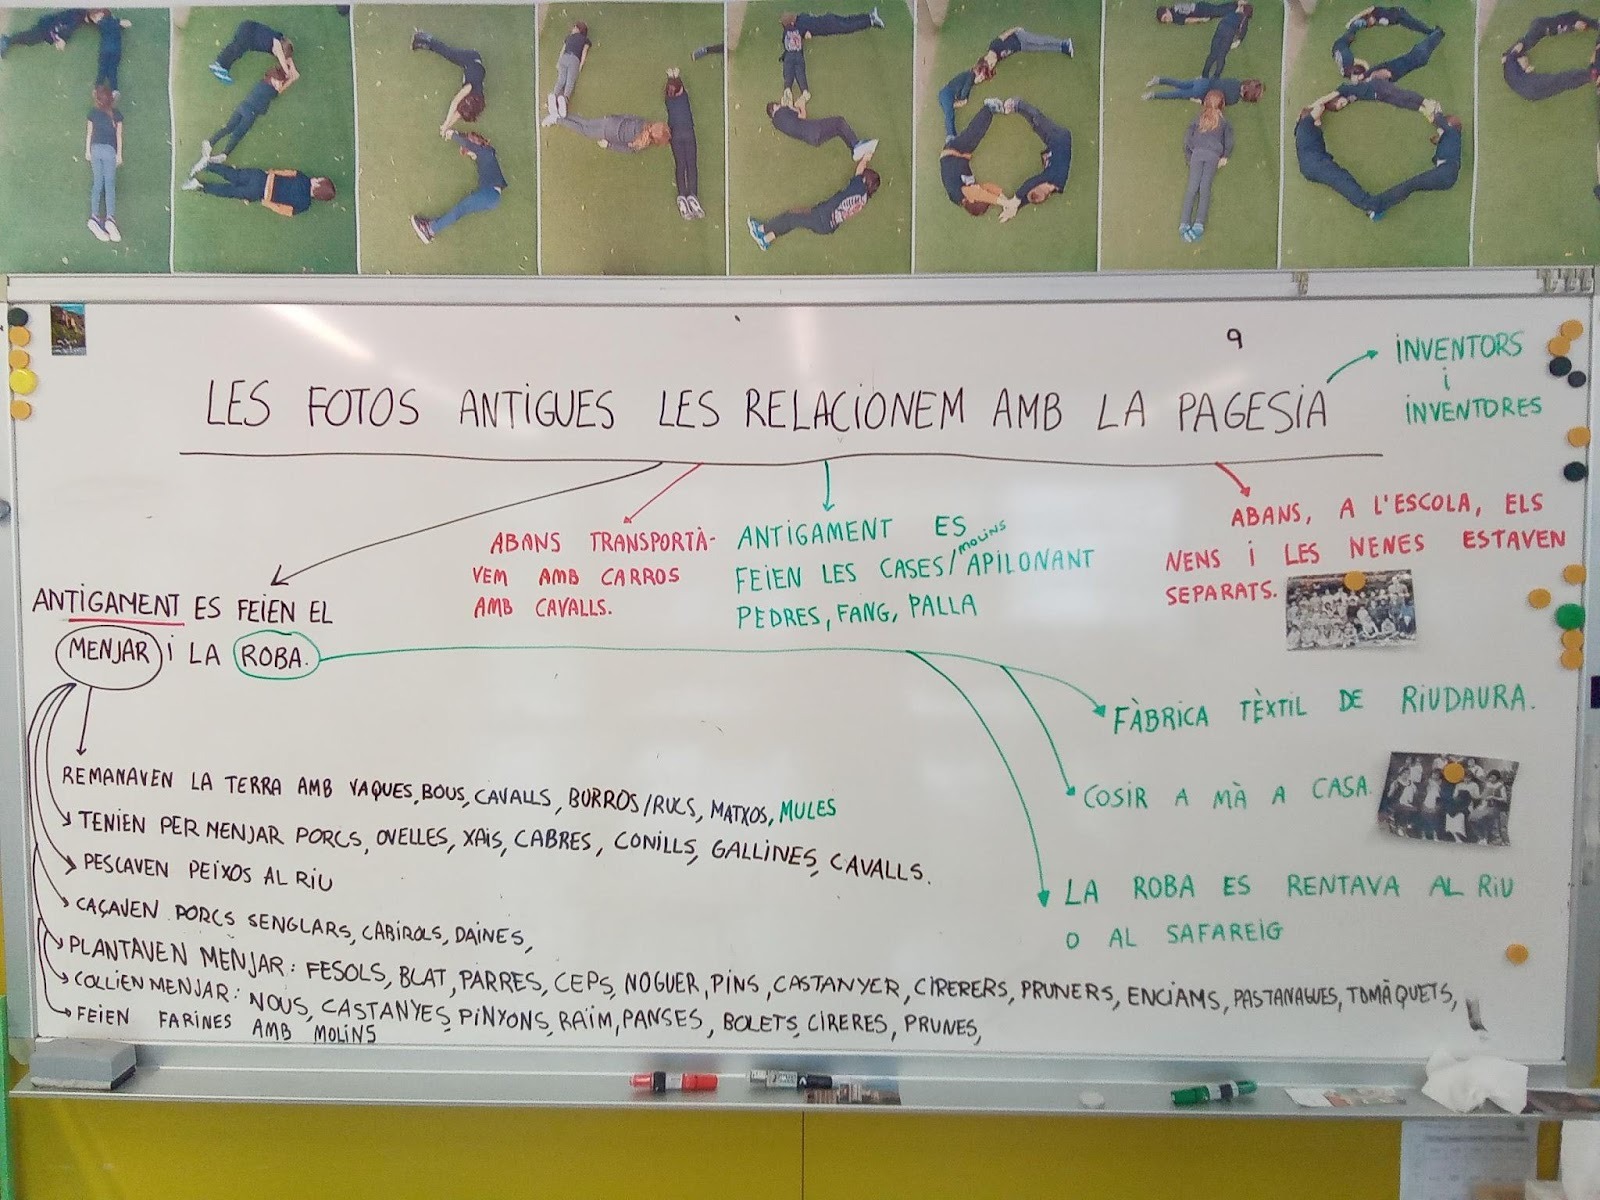 9
LES FOTOS ANTIGUES LES RELACIONEM AMB LA PAGESIA
INVENTORS
i
INVENTORES
ANTIGAMENT ES FEIEN EL
MENJAR i LA ROBA.
ABANS TRANSPORTÀ-
VEM AMB CARROS
AMB CAVALLS.
ANTIGAMENT ES
FEIEN LES CASES/MOLINS APILONANT
PEDRES, FANG, PALLA
ABANS, A L'ESCOLA, ELS
NENS i LES NENES ESTAVEN
SEPARATS.
FÀBRICA TÈXTIL DE RIUDAURA.
COSIR A MÀ A CASA.
LA ROBA ES RENTAVA AL RIU
O AL SAFAREIG
REMANAVEN LA TERRA AMB VAQUES, BOUS, CAVALLS, BURROS/RUCS, MATXOS, MULES
TENIEN PER MENJAR PORCS, OVELLES, XAIS, CABRES, CONILLS, GALLINES, CAVALLS.
PESCAVEN PEIXOS AL RIU
CAÇAVEN PORCS SENGLARS, CABIROLS, DAINES,
PLANTAVEN MENJAR: FESOLS, BLAT, PARRES, CEPS, NOGUER, PINS, CASTANYER, CIRERERS, PRUNERS, ENCIAMS, PASTANAGUES, TOMÀQUETS,
COLLIEN MENJAR: NOUS, CASTANYES, PINYONS, RAÏM, PANSES, BOLETS, CIRERES, PRUNES,
FEIEN FARINES AMB MOLINS